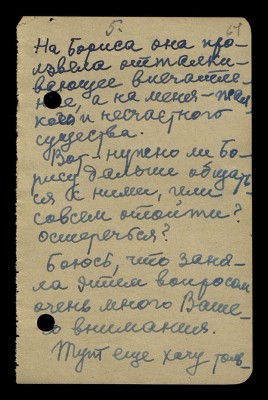 5.
64
На Бориса она про-
извела отталки-
вающее впечатле-
ние, а на меня - жал-
кого и несчастного
существа.
Вот - нужно ли Бо-
рису дальше общать-
ся с ними, или
совсем отойти?
Остеречься?
Боюсь, что заня-
ла этим вопросом
очень много Ваше-
го внимания.
Тут еще хочу